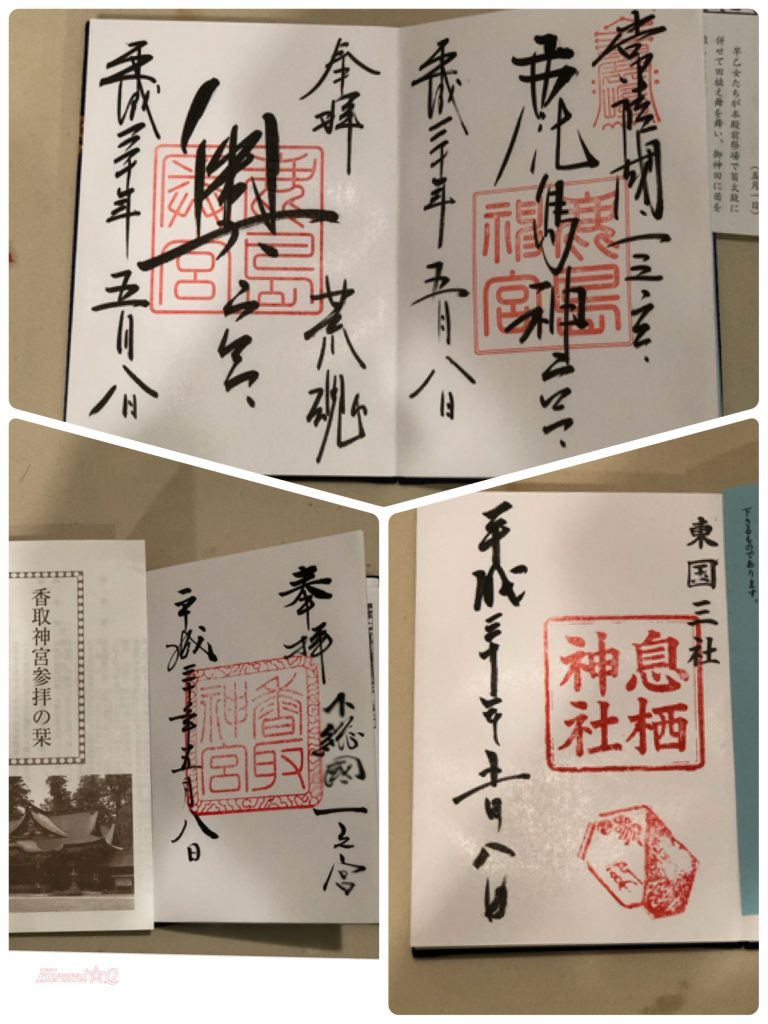 常陸國一之宮
鹿島神宮
鹿島神宮
平成三十年五月八日
早乙女たちが本殿前祭場で笛太鼓に
併せて田植え舞を舞い、御神田に苗を
(五月一日)
奉拝
荒魂
奥宮
鹿島
宮
平成三十年五月八日
奉拝
下総國一之宮
香取神宮
平成三十年五月八日
香取神宮参拝の栞
東国三社
息栖神社
平成三十年五月八日
下さるものであります。
Hiromi☆Q